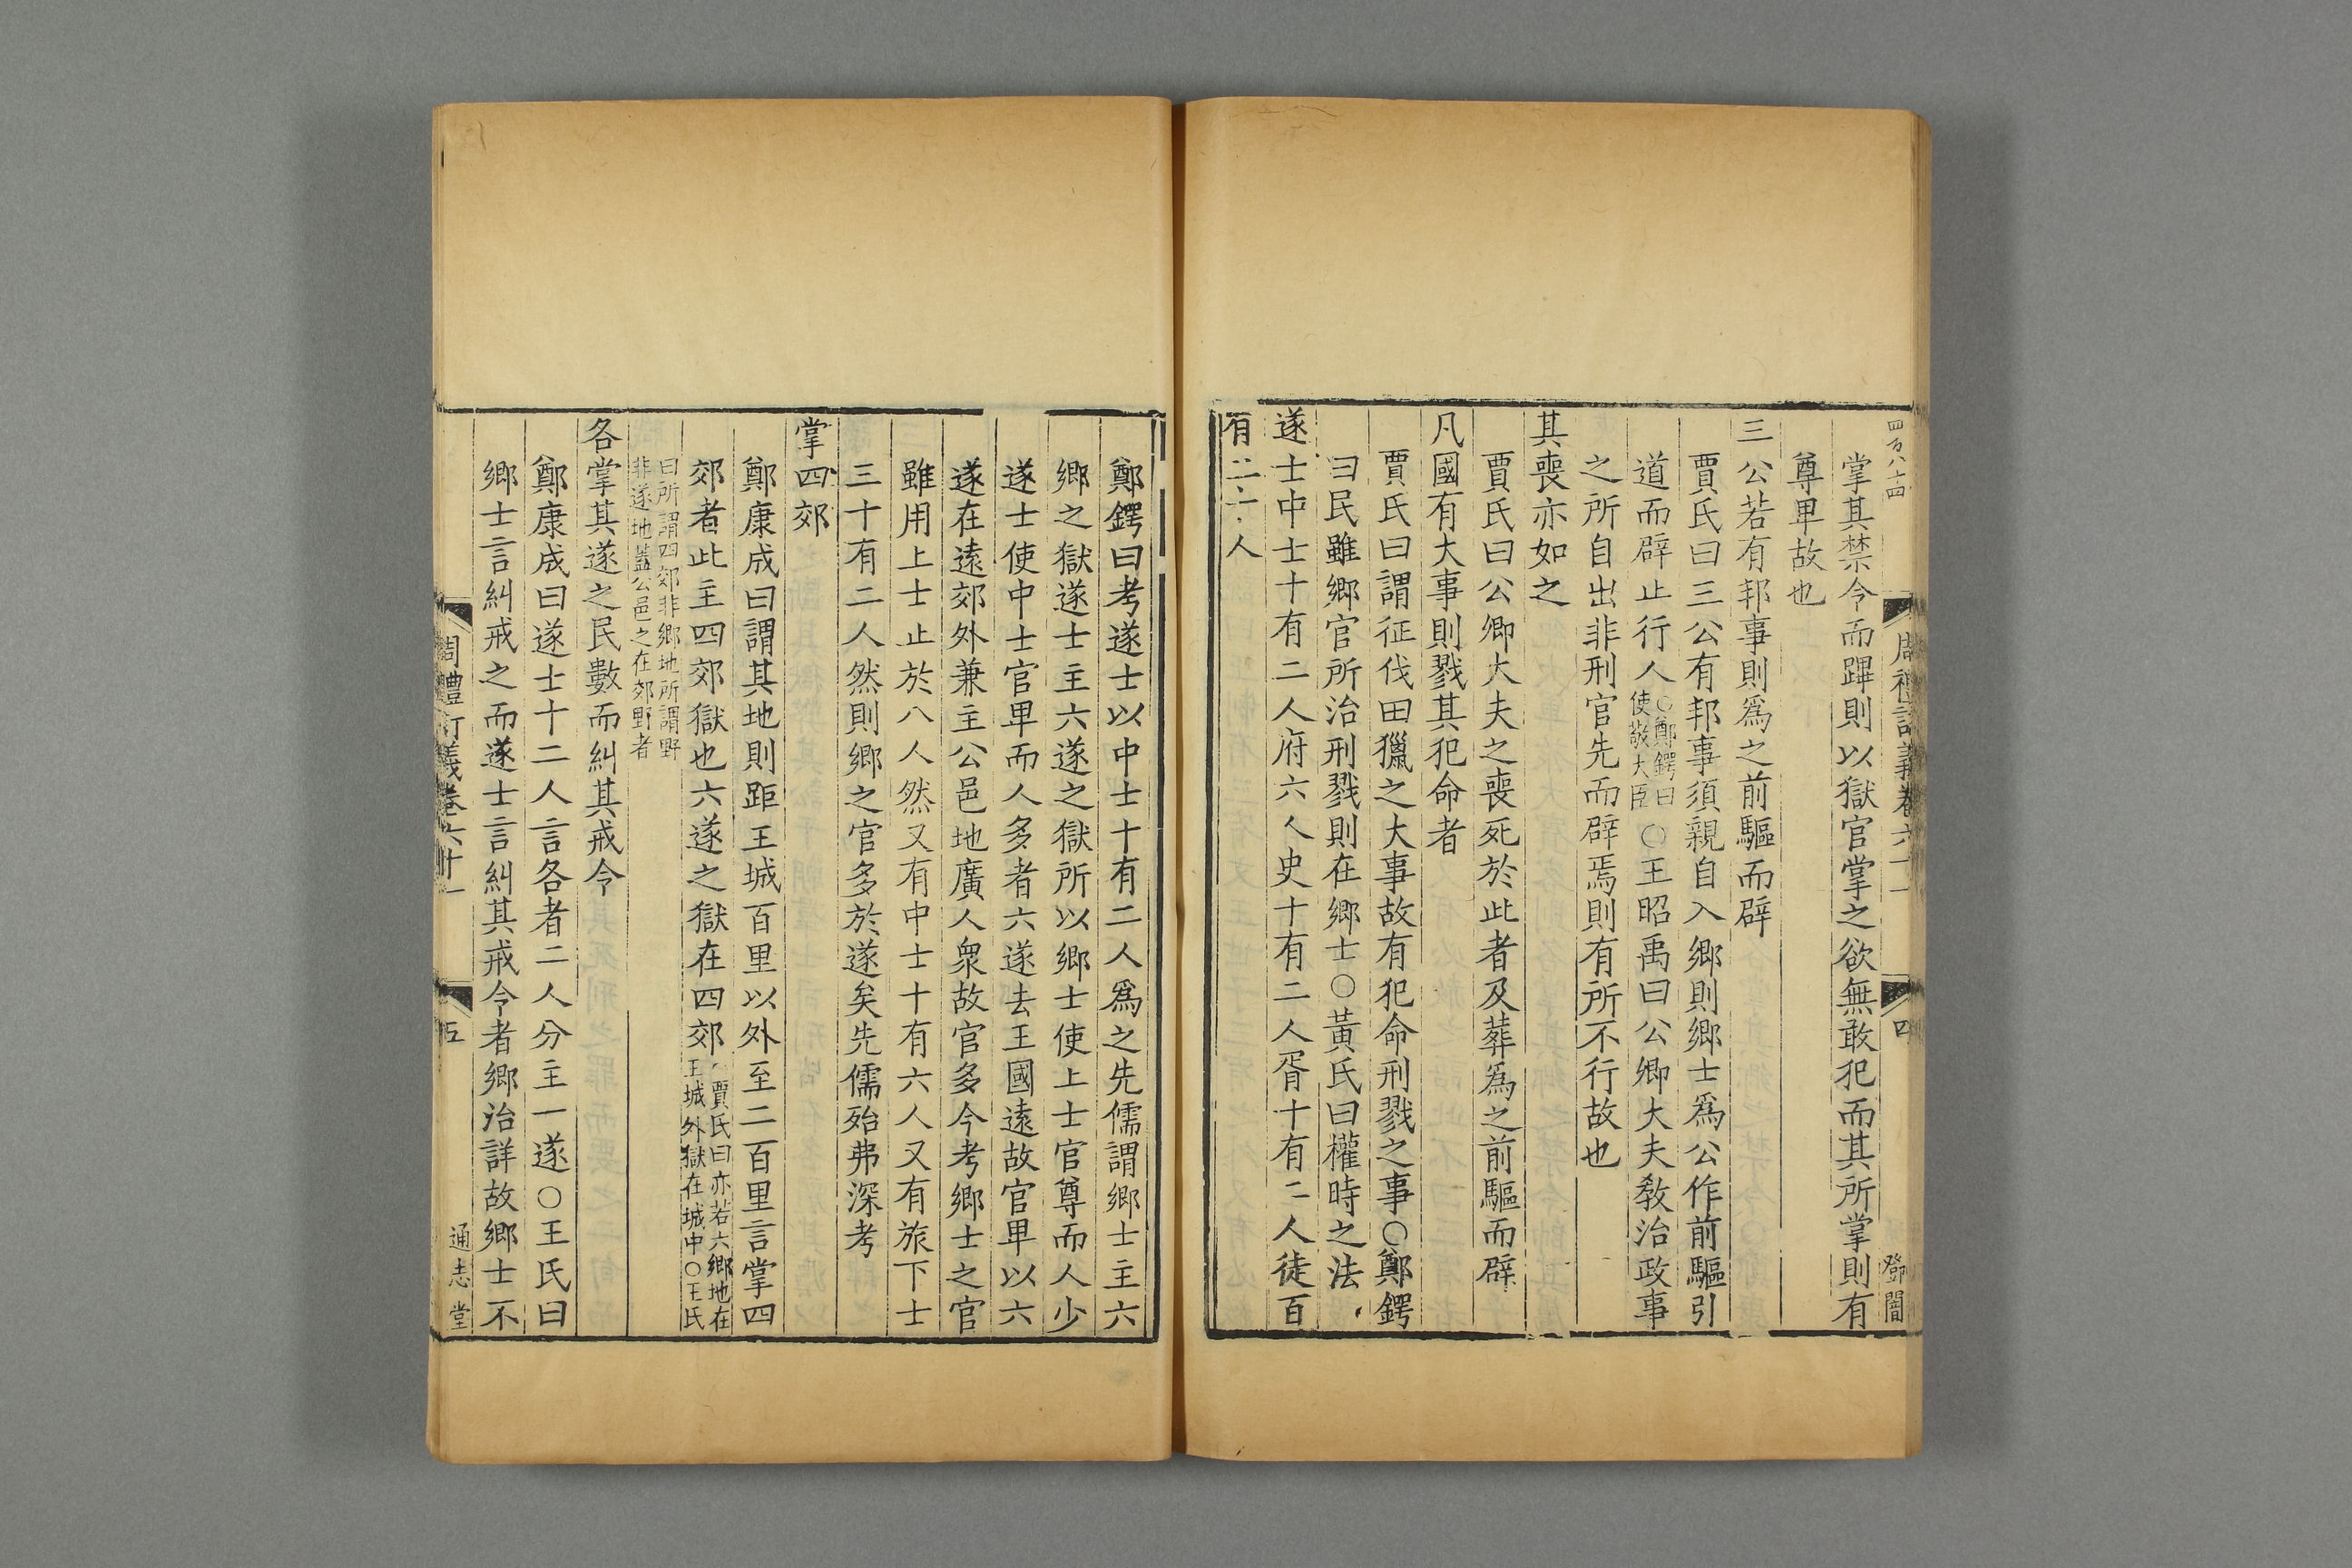 四百八十四
周禮訂義卷六十一
四
鄧闇
掌其禁令而蹕則以獄官掌之欲無敢犯而其所掌則有
尊卑故也
三公若有邦事則爲之前驅而辟
賈氏曰三公有邦事須親自入鄉則鄉士爲公作前驅引
道而辟止行人○鄭鍔曰使敬大臣○王昭禹曰公卿大夫敎治政事
之所自出非刑官先而辟焉則有所不行故也
其喪亦如之
賈氏曰公卿大夫之喪死於此者及葬爲之前驅而辟
凡國有大事則戮其犯命者
賈氏曰謂征伐田獵之大事故有犯命刑戮之事○鄭鍔
曰民雖鄉官所治刑戮則在鄉士○黃氏曰權時之法
遂士中士十有二人府六人史十有二人胥十有二人徒百
有二十人
鄭鍔曰考遂士以中士十有二人爲之先儒謂鄉士主六
鄉之獄遂士主六遂之獄所以鄉士使上士官尊而人少
遂士使中士官卑而人多者六遂去王國遠故官卑以六
遂在遠郊外兼主公邑地廣人衆故官多今考鄉士之官
雖用上士止於八人然又有中士十有六人又有旅下士
三十有二人然則鄉之官多於遂矣先儒殆弗深考
掌四郊
鄭康成曰謂其地則距王城百里以外至二百里言掌四
郊者此主四郊獄也六遂之獄在四郊賈氏曰亦若六鄉地在王城外獄在城中○王氏
曰所謂四郊非鄉地所謂野非遂地蓋公邑之在郊野者
各掌其遂之民數而糾其戒令
鄭康成曰遂士十二人言各者二人分主一遂○王氏曰
鄉士言糾戒之而遂士言糾其戒令者鄉治詳故鄉士不
周禮訂義卷六十一
五
通志堂